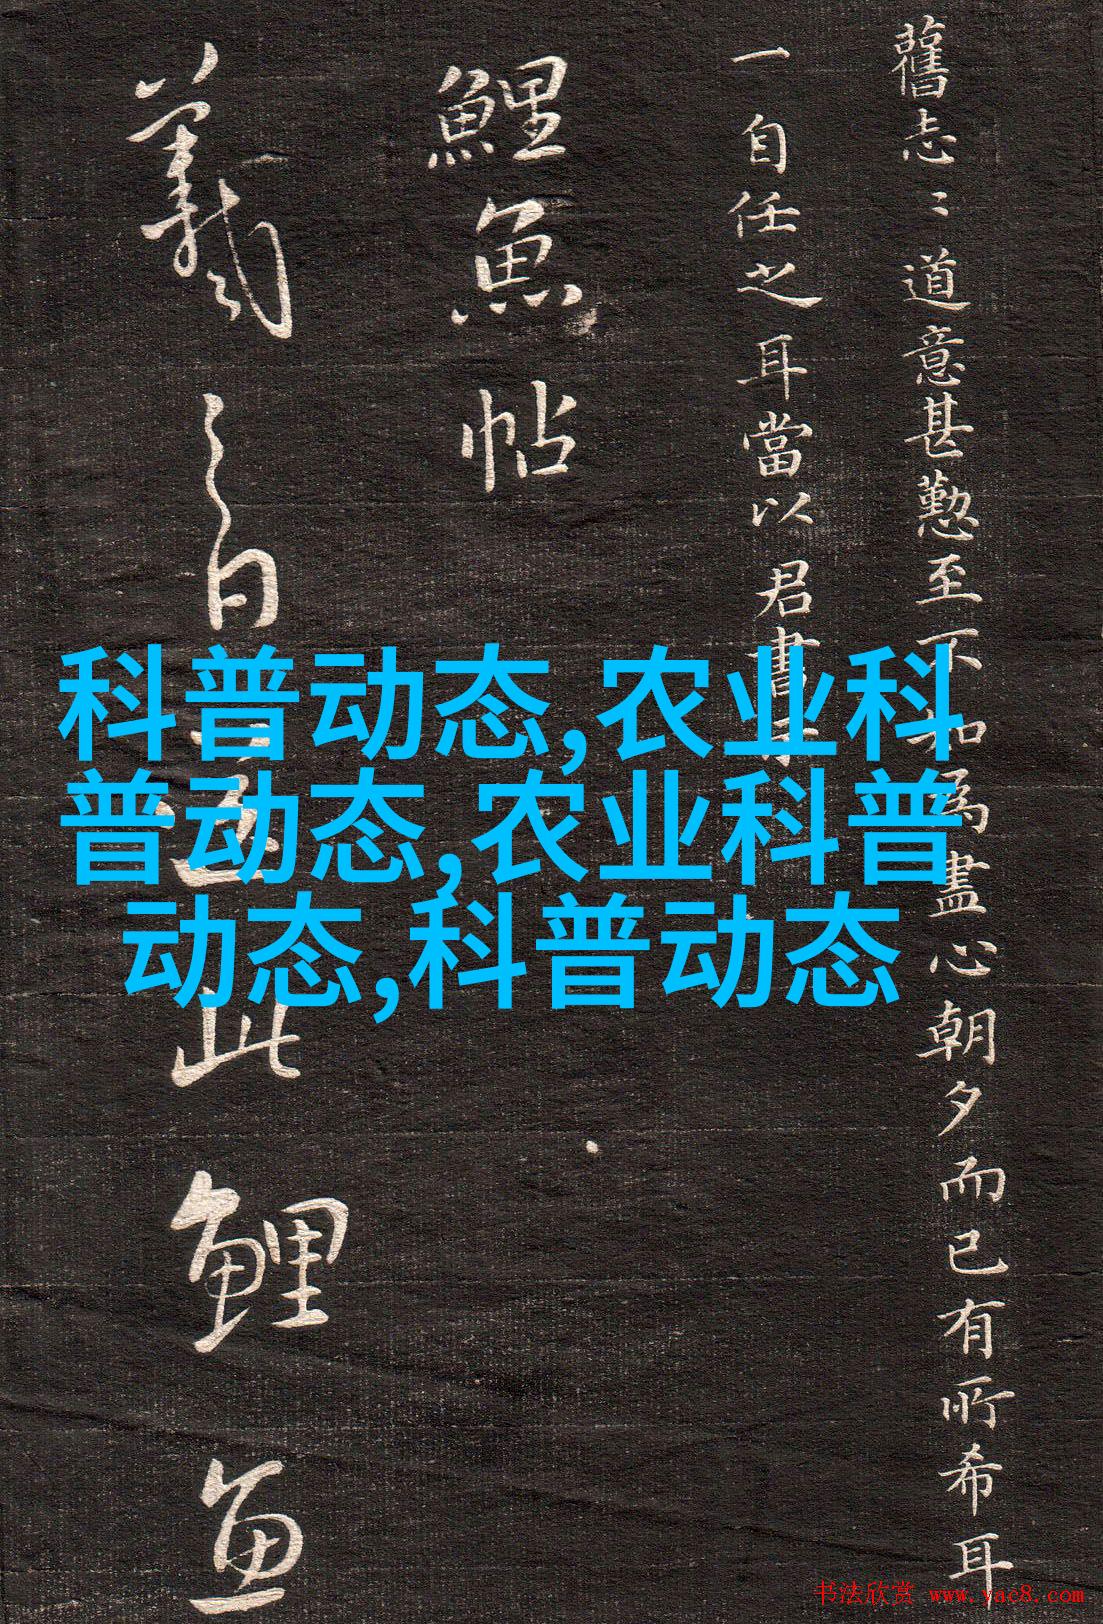 舊志〻道意甚懃至不知為盡心朝夕而已有所希耳
一自任之耳當以君書
鯉魚帖
羲之白 此鯉魚
科普动态,农业科
普动态,农业科普
动态,科普动态
书法欣赏 www.yac8.com